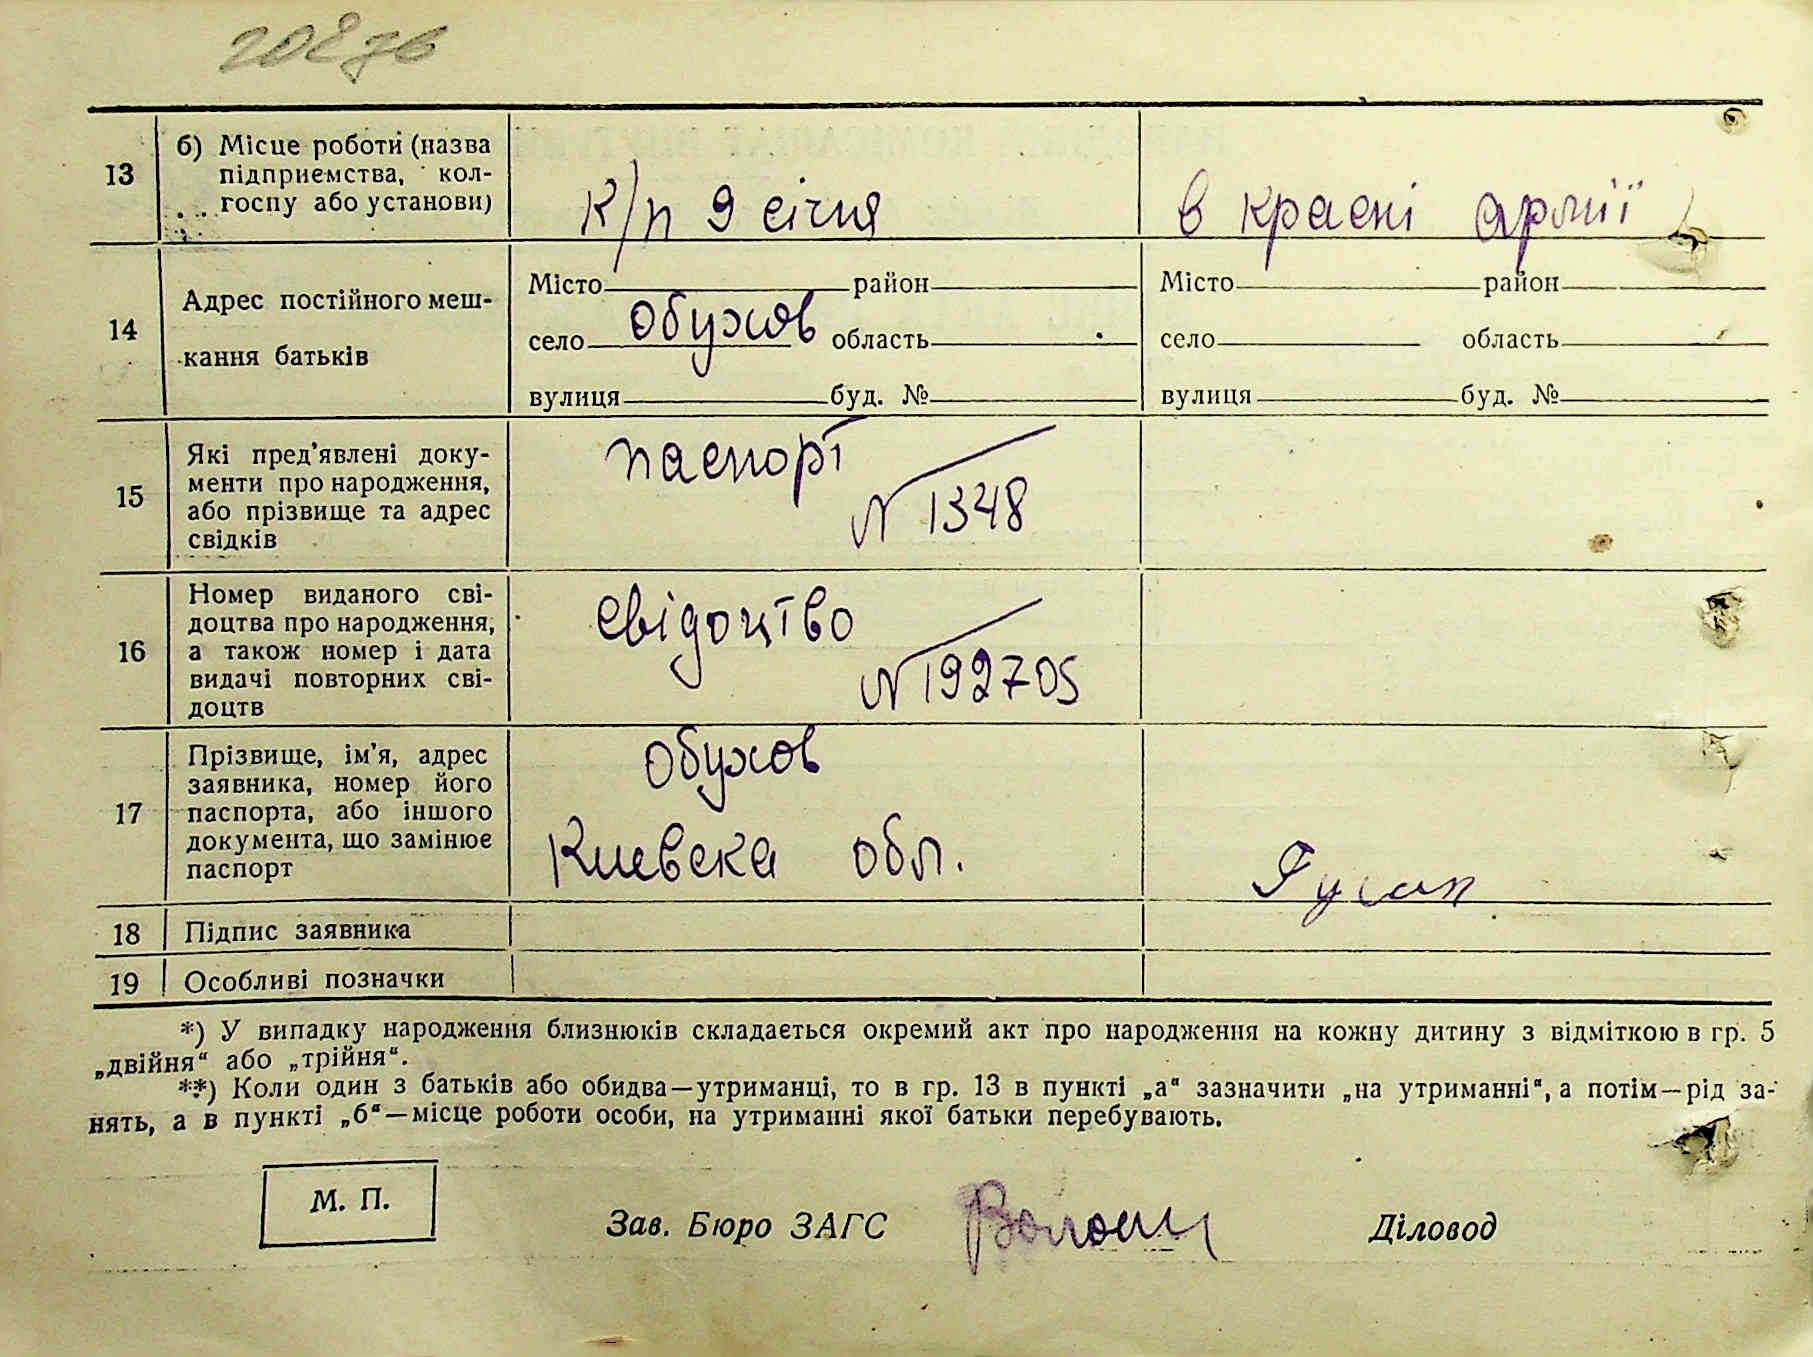 13
б) Місце роботи (назва
підприємства, кол-
госпу або установи)
к/п 9 січня
в красні армії
14
Адрес постійного меш-
кання батьків
Місто район
село Обухов область
вулиця буд. №
Місто район
село область
вулиця буд. №
15
Які пред’явлені доку-
менти про народження,
або прізвище та адрес
свідків
паспорт
N 1348
16
Номер виданого сві-
доцтва про народження,
а також номер і дата
видачі повторних сві-
доцтв
свідоцтво
N 192705
17
Прізвище, ім’я, адрес
заявника, номер його
паспорта, або іншого
документа, що замінює
паспорт
Обухов
Киевска обл.
18
Підпис заявника
19
Особливі позначки
*) У випадку народження близнюків складається окремий акт про народження на кожну дитину з відміткою в гр. 5
„двійня“ або „трійня“.
**) Коли один з батьків або обидва—утриманці, то в гр. 13 в пункті „а“ зазначити „на утриманні“, а потім—рід за-
нять, а в пункті „б“—місце роботи особи, на утриманні якої батьки перебувають.
М. П.
Зав. Бюро ЗАГС
Діловод